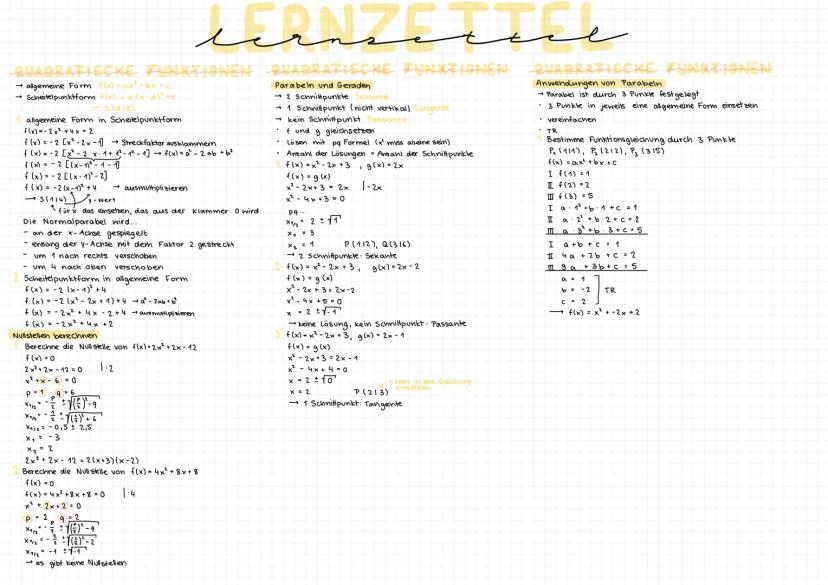 LERNZETTEL
lernzettel
QUADRATISCHE FUNKTIONEN
→ allgemeine Form f(x) = ax² + bx + c
→ Scheitelpunktform f(x) = a(x-d)² + e
→ S(d|e)
1. allgemeine Form in Scheitelpunktform
f(x) = -2x² + 4x + 2
f(x) = -2 [x² - 2x - 1] → Streckfaktor ausklammern
f(x) = -2 [x² - 2 x · 1 + 1² - 1² - 1] → f(x) = a² - 2ab + b²
f(x) = -2 [(x-1)² - 1 - 1]
f(x) = -2 [(x-1)² - 2]
f(x) = -2(x-1)² + 4 → ausmultiplizieren
→ S(1|4) y-Wert
für x das einsetzen, das aus der Klammer 0 wird
Die Normalparabel wird...
- an der x-Achse gespiegelt
- entlang der y-Achse mit dem Faktor 2 gestreckt
- um 1 nach rechts verschoben
- um 4 nach oben verschoben
2. Scheitelpunktform in allgemeine Form
f(x) = -2(x-1)² + 4
f(x) = -2(x² - 2x + 1) + 4 → a² - 2ab + b²
f(x) = -2x² + 4x - 2 + 4 → ausmultiplizieren
f(x) = -2x² + 4x + 2
Nullstellen berechnen
1. Berechne die Nullstelle von f(x) = 2x² + 2x - 12
f(x) = 0
2x² + 2x - 12 = 0 |:2
x² + x - 6 = 0
p = 1 q = 6
x₁/₂ = -p/2 ± √((p/2)² - q)
x₁/₂ = -1/2 ± √((1/2)² + 6)
x₁/₂ = -0,5 ± 2,5
x₁ = -3
x₂ = 2
2x² + 2x - 12 = 2(x+3)(x-2)
2. Berechne die Nullstelle von f(x) = 4x² + 8x + 8
f(x) = 0
f(x) = 4x² + 8x + 8 = 0 |:4
x² + 2x + 2 = 0
p = 2 q = 2
x₁/₂ = -p/2 ± √((p/2)² - q)
x₁/₂ = -2/2 ± √((2/2)² - 2)
x₁/₂ = -1 ± √-1
→ es gibt keine Nullstellen
QUADRATISCHE FUNKTIONEN
Parabeln und Geraden
→ 2 Schnittpunkte Sekante
→ 1 Schnittpunkt (nicht vertikal) Tangente
→ kein Schnittpunkt Passante
· f und g gleichsetzen
· lösen mit pq Formel (x² muss alleine sein)
· Anzahl der Lösungen = Anzahl der Schnittpunkte
1. f(x) = x² - 2x + 3 , g(x) = 2x
f(x) = g(x)
x² - 2x + 3 = 2x |-2x
x² - 4x + 3 = 0
pq...
x₁/₂ = 2 ± √1
x₁ = 3
x₂ = 1 P(1|2), Q(3|6)
→ 2 Schnittpunkte: Sekante
2. f(x) = x² - 2x + 3, g(x) = 2x - 2
f(x) = g(x)
x² - 2x + 3 = 2x - 2
x² - 4x + 5 = 0
x = 2 ± √-1
→ keine Lösung, kein Schnittpunkt: Passante
3. f(x) = x² - 2x + 3, g(x) = 2x - 1
f(x) = g(x)
x² - 2x + 3 = 2x - 1
x² - 4x + 4 = 0
x = 2 ± √0
x = 2 P(2|3)
x Wert in eine Gleichung
einsetzen
→ 1 Schnittpunkt: Tangente
QUADRATISCHE FUNKTIONEN
Anwendungen von Parabeln
→ Parabel ist durch 3 Punkte festgelegt
· 3 Punkte in jeweils eine allgemeine Form einsetzen
· vereinfachen
· TR
1. Bestimme Funktionsgleichung durch 3 Punkte
P₁(1|1), P₂(2|2), P₃(3|5)
f(x) = ax² + bx + c
I f(1) = 1
II f(2) = 2
III f(3) = 5
I a · 1² + b · 1 + c = 1
II a · 2² + b · 2 + c = 2
III a · 3² + b · 3 + c = 5
I a + b + c = 1
II 4a + 2b + c = 2
III 9a + 3b + c = 5
a = 1
b = -2 TR
c = 2
→ f(x) = x² + -2x + 2